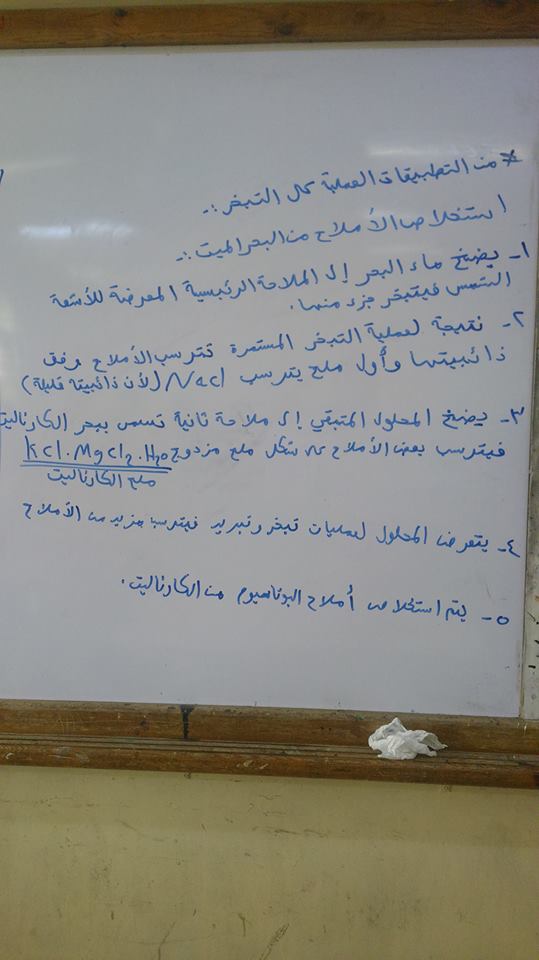 * من التطبيقات العملية على التبخر :-
استخلاص الأملاح من البحر الميت :-
١- يضخ ماء البحر إلى الملاحة الرئيسية المعرضة للأشعة
الشمس فيتبخر جزء منها.
٢- نتيجة لعملية التبخر المستمرة تترسب الأملاح وفق
ذائبيتها وأول ملح يترسب NaCl (لأن ذائبيته قليلة)
٣- يضخ المحلول المتبقي إلى ملاحة ثانية تسمى ببحر الكارناليت
فيترسب بعض الأملاح على شكل ملح مزدوج KCl.MgCl₂.H₂O
ملح الكارناليت
٤- يتعرض المحلول لعمليات تبخر وتبريد فيترسب مزيد من الأملاح
٥- يتم استخلاص أملاح البوتاسيوم من الكارناليت.